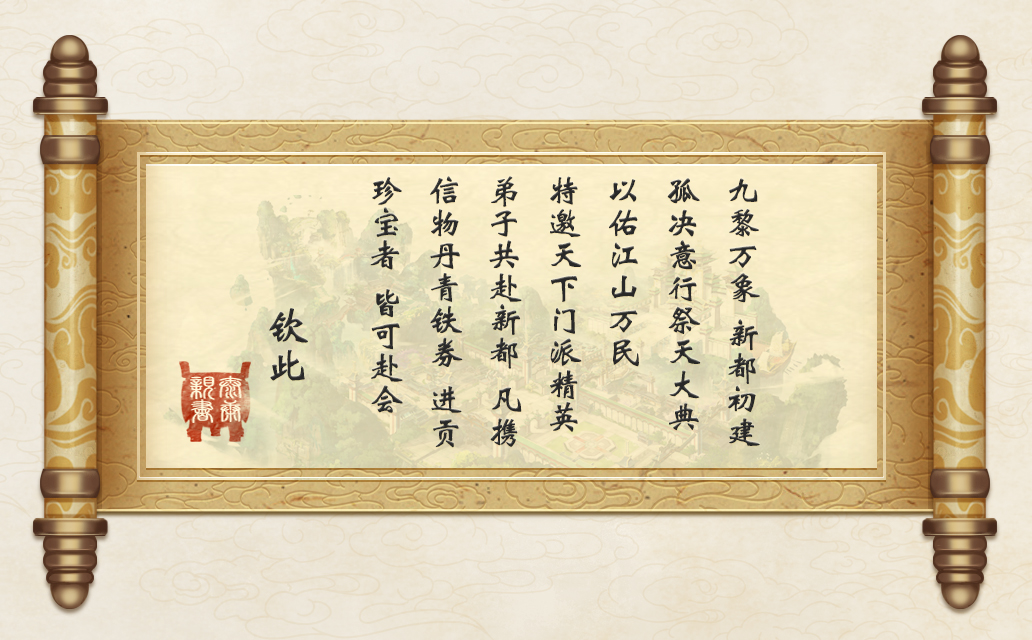 九黎万象 新都初建
孤决意行祭天大典
以佑江山万民
特邀天下门派精英
弟子共赴新都 凡携
信物丹青铁券 进贡
珍宝者 皆可赴会
钦此